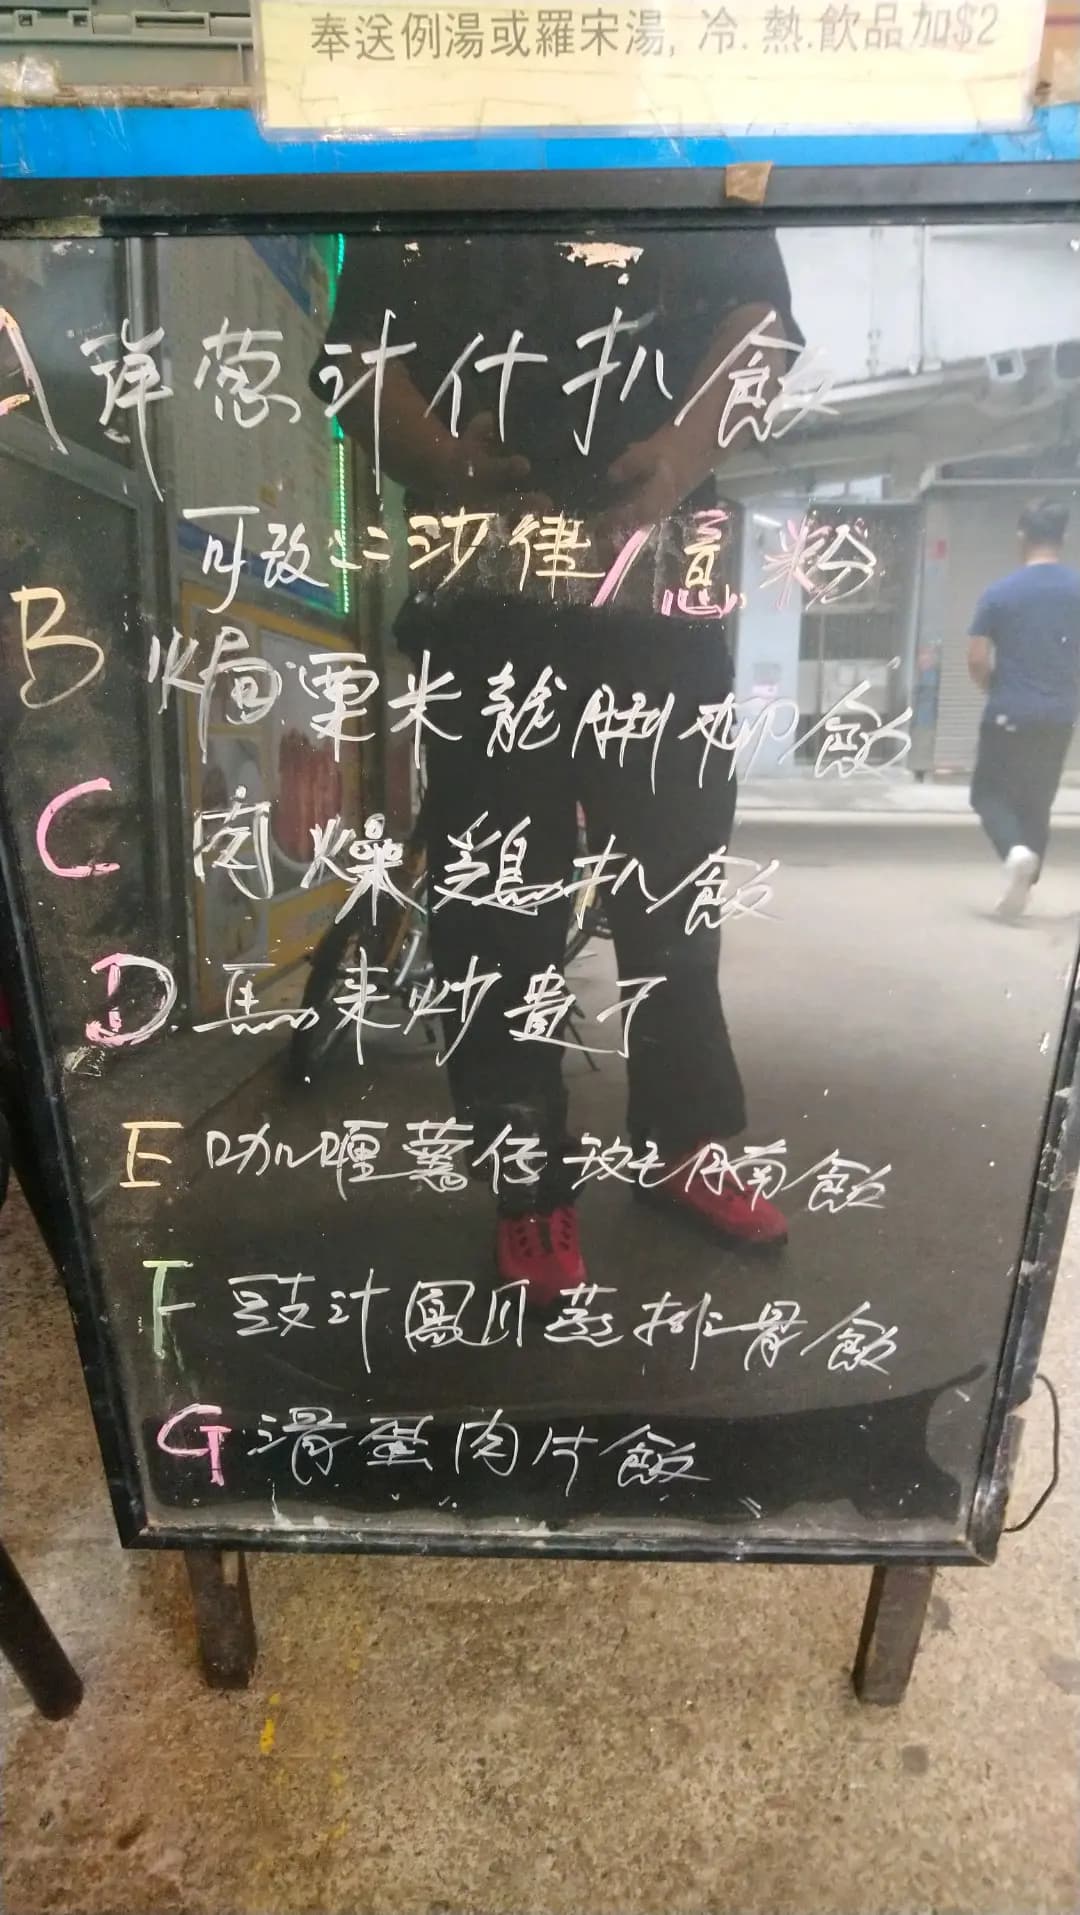 奉送例湯或羅宋湯, 冷.熱.飲品加$2
A 洋葱汁什扒飯
可改：沙律/意粉
B 焗粟米龍脷柳飯
C 肉燥鷄扒飯
D. 馬来炒貴刁
E 咖喱薯仔斑腩飯
F 豉汁鳳爪蒸排骨飯
G 滑蛋肉片飯